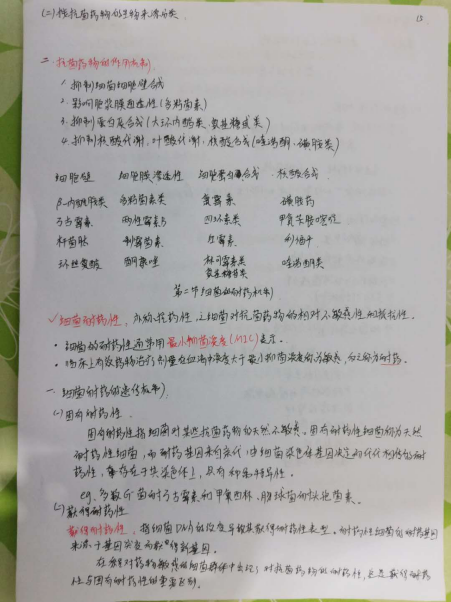 (二)按抗菌药物的生物来源分类
13
二、抗菌药物的作用机制
1. 抑制细菌细胞壁合成
2. 影响胞浆膜通透性(多粘菌素)
3. 抑制蛋白质合成(大环内酯类、氨基糖苷类)
4. 抑制核酸代谢、叶酸代谢、核酸合成(喹诺酮、磺胺类)
细胞壁 细胞膜渗透性 细胞蛋白质合成 核酸合成
β-内酰胺类 多粘菌素类 氯霉素 磺胺药
万古霉素 两性霉素B 四环素类 甲氧苄胺嘧啶
杆菌肽 制霉菌素 红霉素 利福平
环丝氨酸 酮康唑 林可霉素类 喹诺酮类
氨基糖苷类
第二节 细菌的耐药机制
✓细菌耐药性,亦称抗药性,指细菌对抗菌药物的相对不敏感性和抵抗性。
· 细菌的耐药性通常用最小抑菌浓度(MIC)表示。
· 临床上有效药物治疗剂量在血清中浓度大于最小抑菌浓度称为敏感,反之称为耐药。
一、细菌耐药的遗传机制
(一)固有耐药性
固有耐药性指细菌对某些抗菌药物的天然不敏感。固有耐药性细菌称为天然
耐药性细菌,其耐药基因来自亲代,由细菌染色体基因决定的代代相传的耐
药性,存在于其染色体上,具有种属特异性。
eg. 多数G⁻菌耐万古霉素和甲氧西林,肠球菌耐头孢菌素。
(二)获得耐药性
获得耐药性,指细菌DNA的改变导致其获得耐药性表型。耐药性细菌的耐药基因
来源于基因突变或获得新基因。
在原对药物敏感的细菌群体中出现了对抗菌药物的耐药性,这是获得耐药
性与固有耐药性的重要区别。